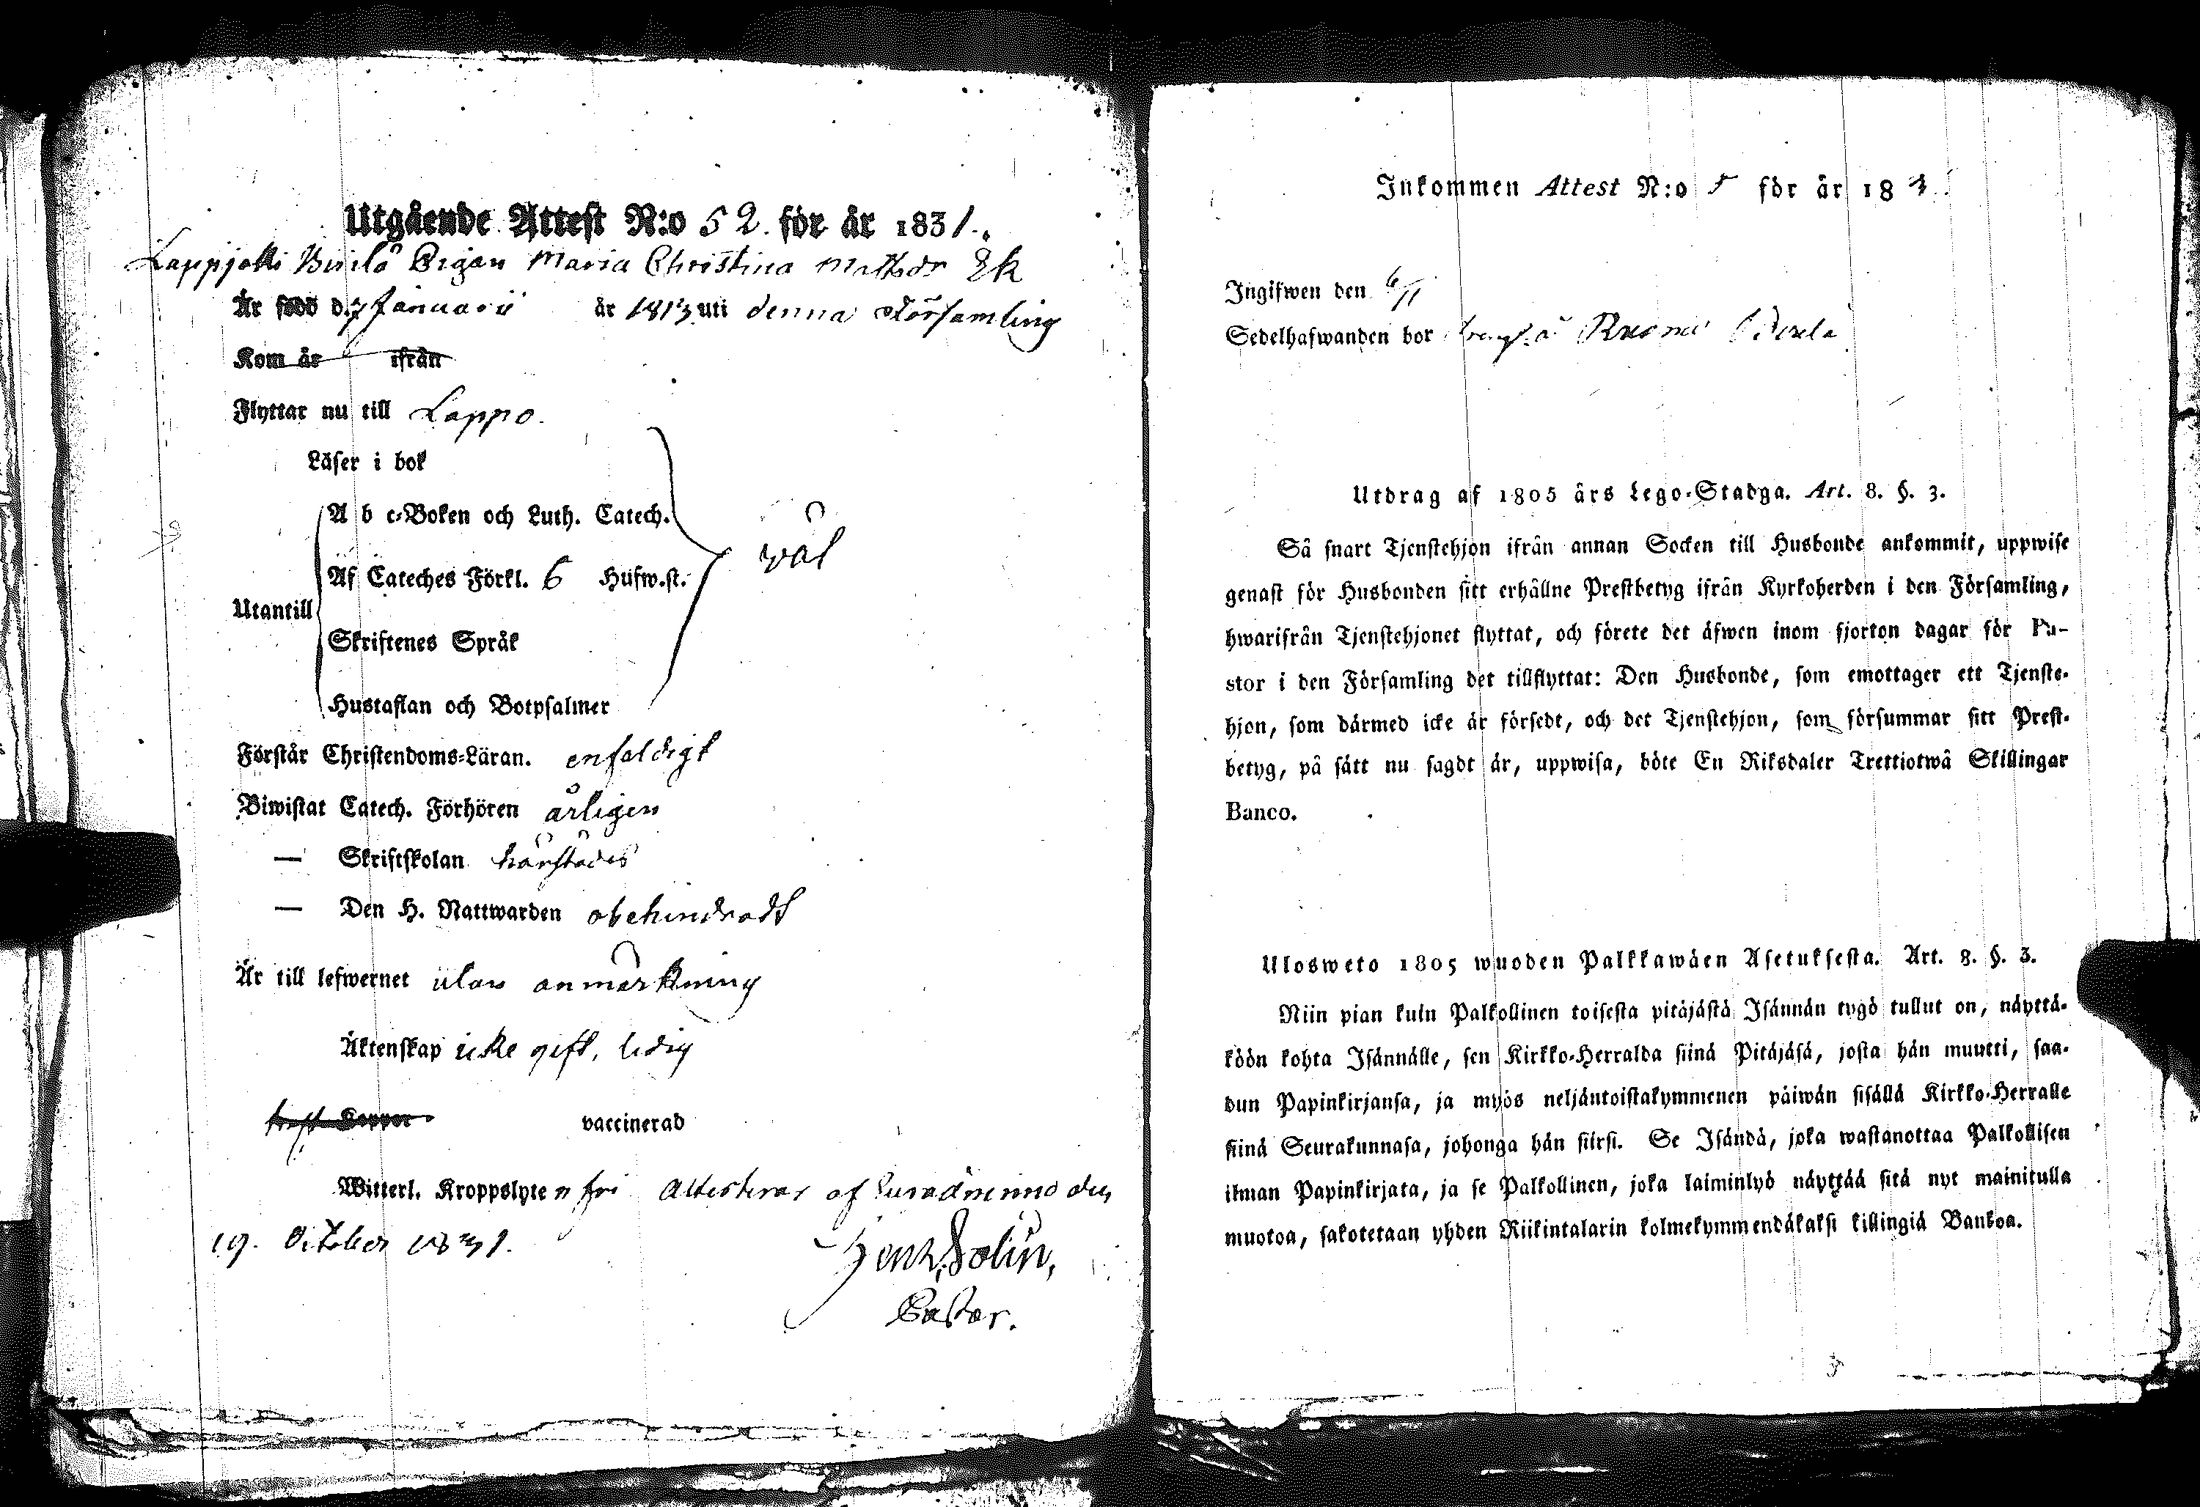 Utgående Attest N:o 52. för år 1831.
Lappjokki Pigan Maria Christina Mattsdr Ek
Är född d. 7 Januarii år 1813 uti denna Församling
Kom år ifrån
Flyttar nu till Lappo.
Läser i bok
A b c-Boken och Luth. Catech.
wäl
Af Cateches Förkl. 6 Hufw.st.
Utantill
Skriftenes Språk
Hustaflan och Botpsalmer
Förstår Christendoms-Läran. enfaldigt
Biwistat Catech. Förhören årligen
— Skriftskolan härstädes
— Den H. Nattwarden obehindradt
Är till lefwernet utan anmärkning
Äktenskap icke gift, ledig
haft Koppor vaccinerad
Witterl. Kroppslyten fri Attesterar af den
19. October 1831.
Henr. Solin,
Pastor.
Inkommen Attest N:o 5 för år 183
Ingifwen den 6/11
Sedelhafwanden bor
Utdrag af 1805 års Lego-Stadga. Art. 8. §. 3.
Så snart Tjenstehjon ifrån annan Socken till Husbonde ankommit, uppwise
genast för Husbonden sitt erhållne Prestbetyg ifrån Kyrkoherden i den Församling,
hwarifrån Tjenstehjonet flyttat, och förete det äfwen inom fjorton dagar för Pa-
stor i den Församling det tillflyttat: Den Husbonde, som emottager ett Tjenste-
hjon, som därmed icke är försedt, och det Tjenstehjon, som försummar sitt Prest-
betyg, på sätt nu sagdt är, uppwisa, böte En Riksdaler Trettiotwå Skillingar
Banco.
Ulosweto 1805 wuoden Palkkawäen Asetuksesta. Art. 8. §. 3.
Niin pian kuin Palkollinen toisesta pitäjästä Isännän tygö tullut on, näyttä-
köön kohta Isännälle, sen Kirkko-Herralda siinä Pitäjäsä, josta hän muutti, saa-
dun Papinkirjansa, ja myös neljäntoistakymmenen päiwän sisällä Kirkko-Herralle
siinä Seurakunnasa, johonga hän siirsi. Se Isändä, joka wastanottaa Palkollisen
ilman Papinkirjata, ja se Palkollinen, joka laiminlyö näyttää sitä nyt mainitulla
muotoa, sakotetaan yhden Riikintalarin kolmekymmendäkaksi killingiä Bankoa.